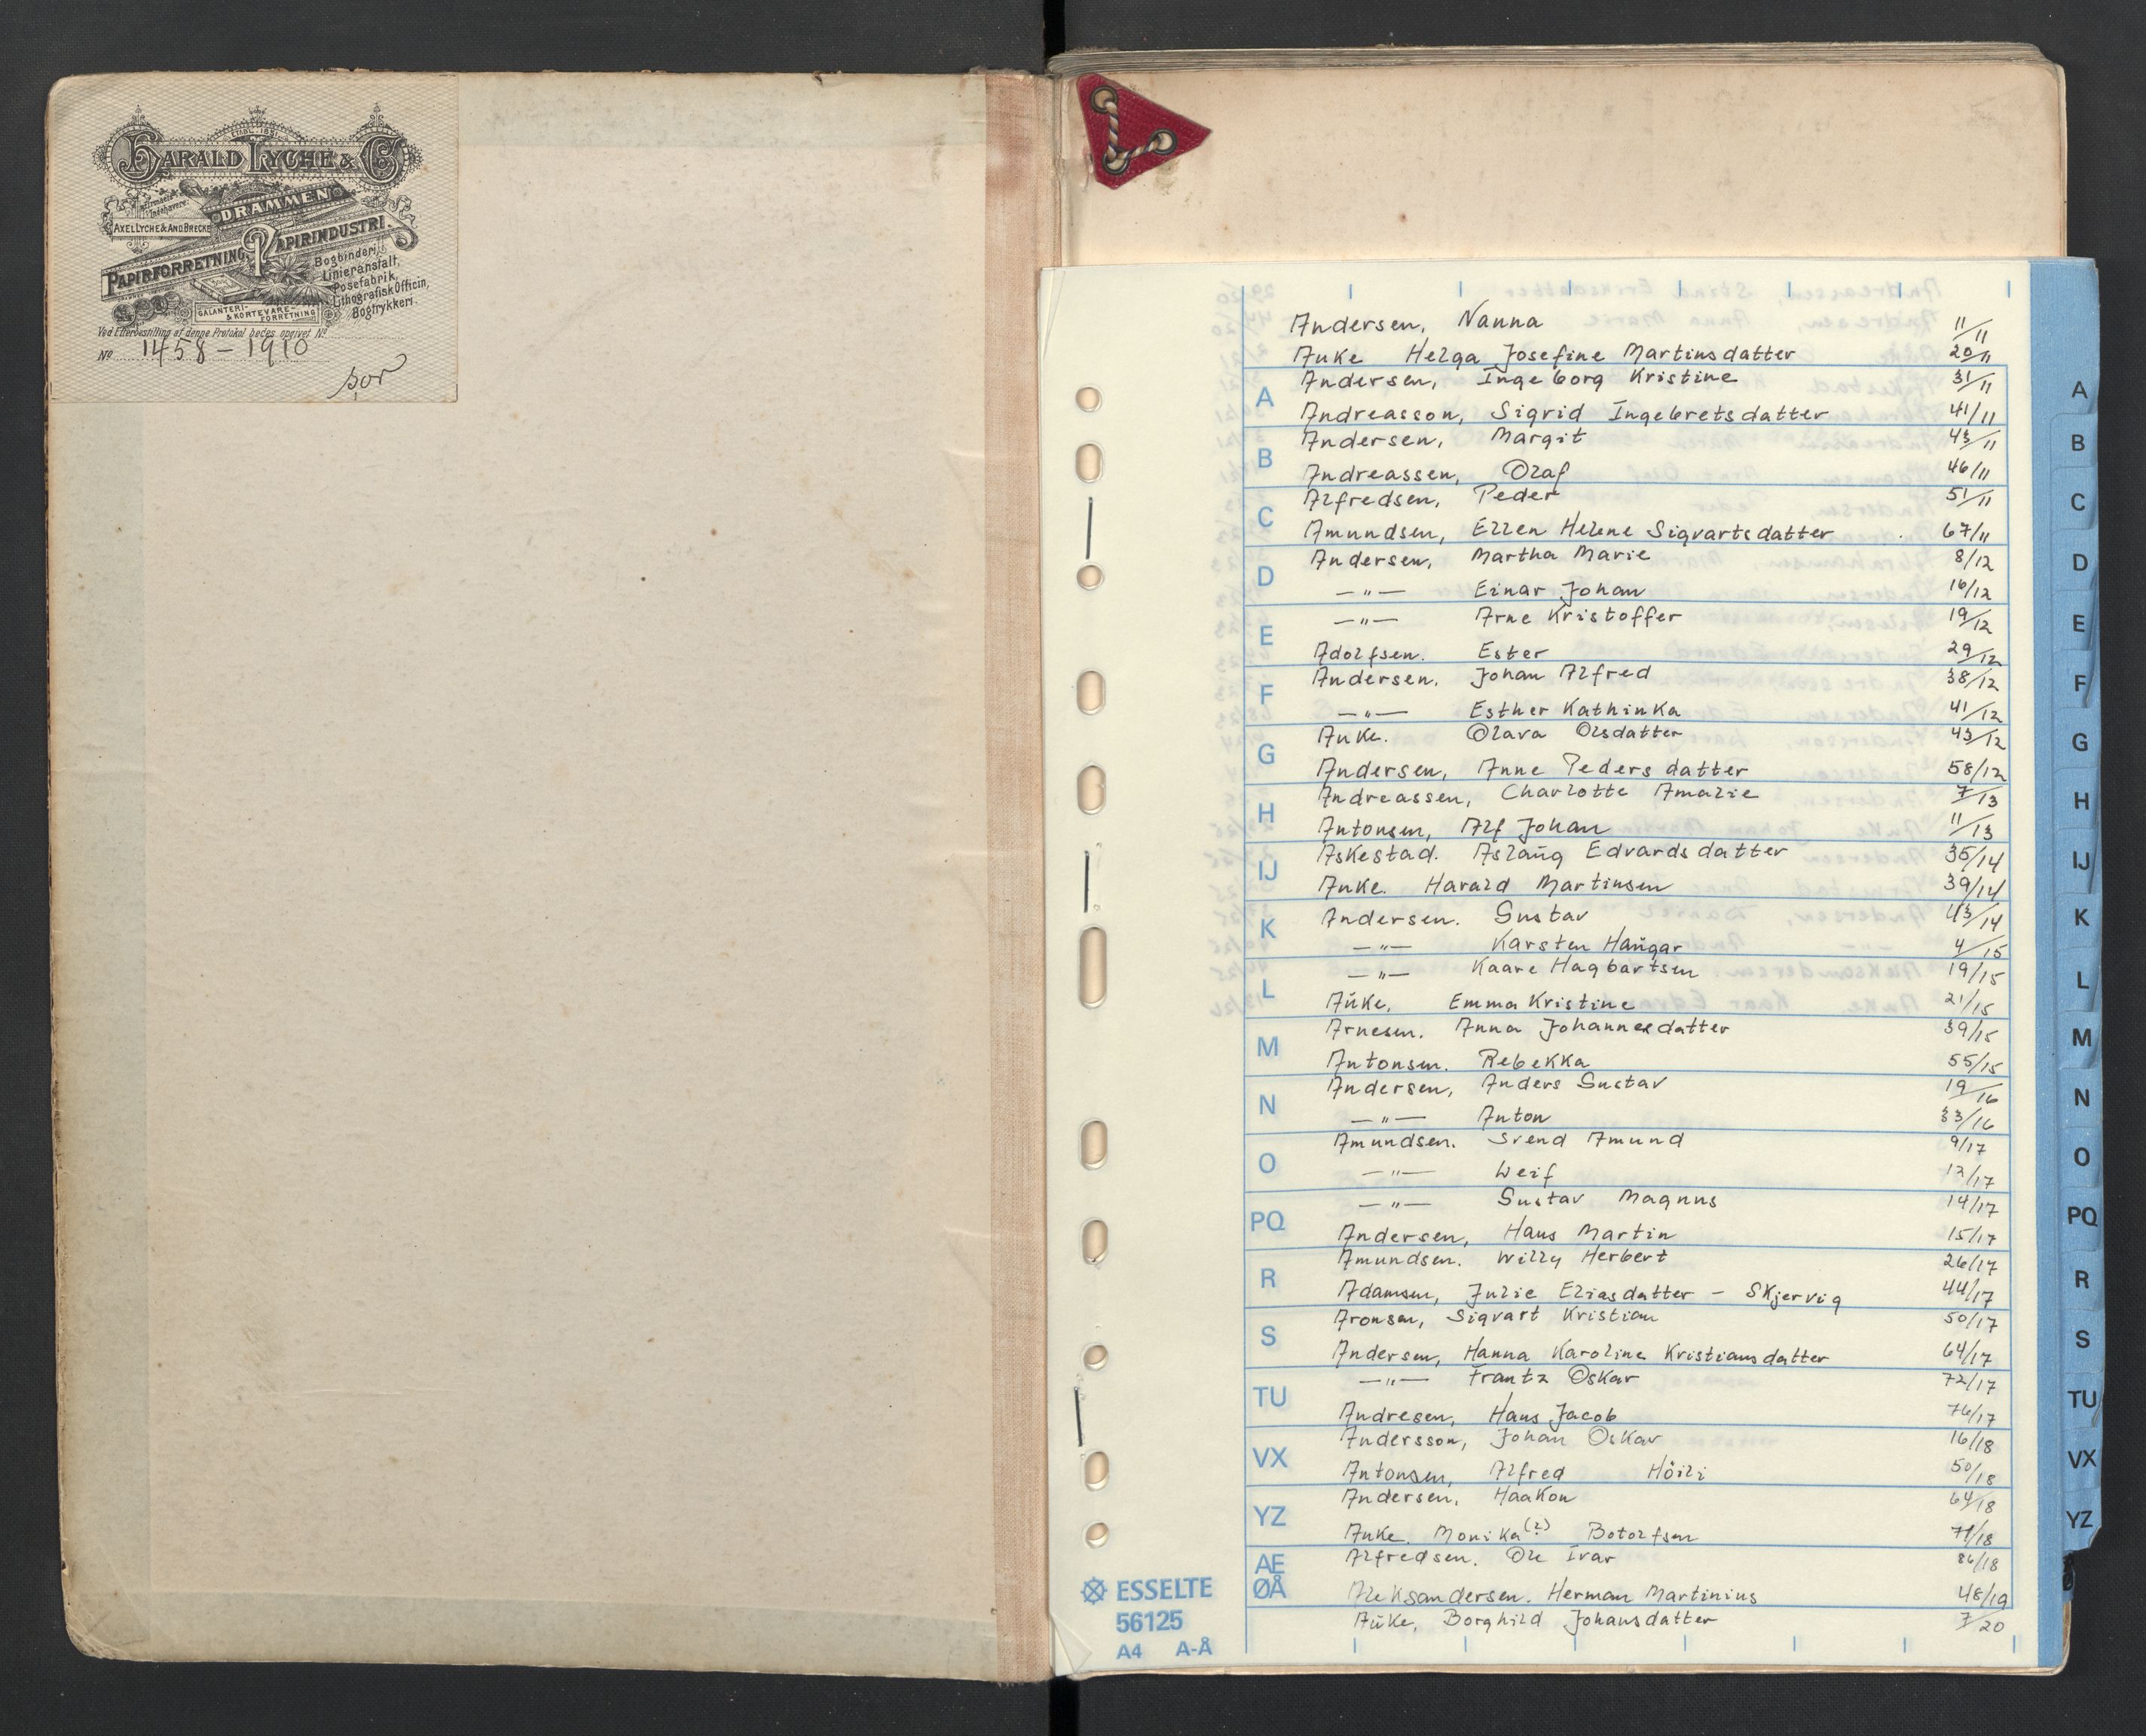 ETABL. 1851
HARALD LYCHE & CO
Firmaets Indehavere:
DRAMMEN
AXEL LYCHE & AND. BRECKE
PAPIRINDUSTRI.
PAPIRFORRETNING
Bogbinderi,
Linieranstalt,
Posefabrik,
Lithografisk Officin,
Bogtrykkeri.
GALANTERI-
& KORTEVARE-
FORRETNING
Ved Efterbestilling af denne Protokol bedes opgivet No
No 1458-1910
Andersen, Nanna 11/11
Auke Helga Josefine Martinsdatter 20/11
A Andersen, Ingeborg Kristine 31/11
Andreasson, Sigrid Ingebretsdatter 41/11
B Andersen, Margit 43/11
Andreassen, Olaf 46/11
C Alfredsen, Peder 51/11
Amundsen, Ellen Helene Sigvartsdatter 67/11
D Andersen, Martha Marie 8/12
—"— Einar Johan 16/12
E —"— Arne Kristoffer 19/12
Adolfsen. Ester 29/12
F Andersen. Johan Alfred 38/12
—"— Esther Kathinka 41/12
G Auke. Olava Olsdatter 43/12
Andersen, Anne Peders datter 58/12
H Andreassen, Charlotte Amalie 7/13
Antonsen, Alf Johan 11/13
IJ Askestad. Aslaug Edvards datter 35/14
Auke. Harald Martinsen 39/14
K Andersen. Gustav 43/14
—"— Karsten Haugar 4/15
L —"— Kaare Hagbartsen 19/15
Auke, Emma Kristine 21/15
M Arnesen. Anna Johannesdatter 39/15
Antonsen. Rebekka 55/15
N Andersen, Anders Gustav 19/16
—"— Anton 33/16
O Amundsen. Svend Amund 9/17
—"— Leif 12/17
PQ —"— Gustav Magnus 14/17
Andersen, Hans Martin 15/17
R Amundsen. Willy Herbert 26/17
Adamsen, Julie Eliasdatter - Skjervig 44/17
S Aronsen, Sigvart Kristian 50/17
Andersen, Hanna Karoline Kristiansdatter 64/17
TU —"— Frantz Oskar 72/17
Andresen, Hans Jacob 76/17
VX Andersson, Johan Oskar 16/18
Antonsen, Alfred Höili 50/18
YZ Andersen, Haakon 64/18
Auke. Monika (?) Botolfsen 71/18
AE Alfredsen. Ole Ivar 86/18
ØÅ Aleksandersen. Herman Martinius 48/19
Auke, Borghild Johansdatter 7/20
ESSELTE
56125
A4 A-Å
A
B
C
D
E
F
G
H
IJ
K
L
M
N
O
PQ
R
S
TU
VX
YZ